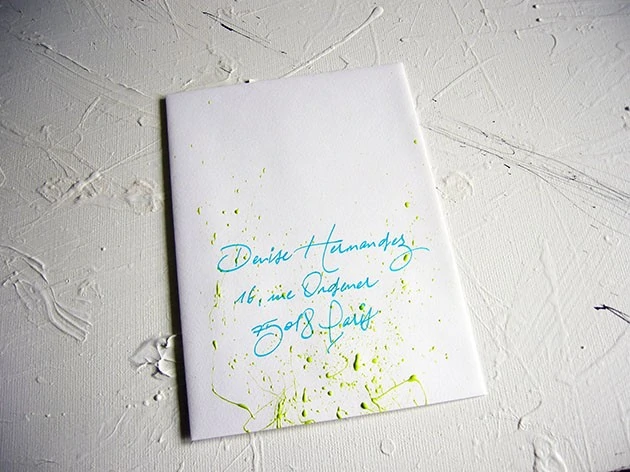 Denise Hernandez
16, rue Ordener
75018 Paris